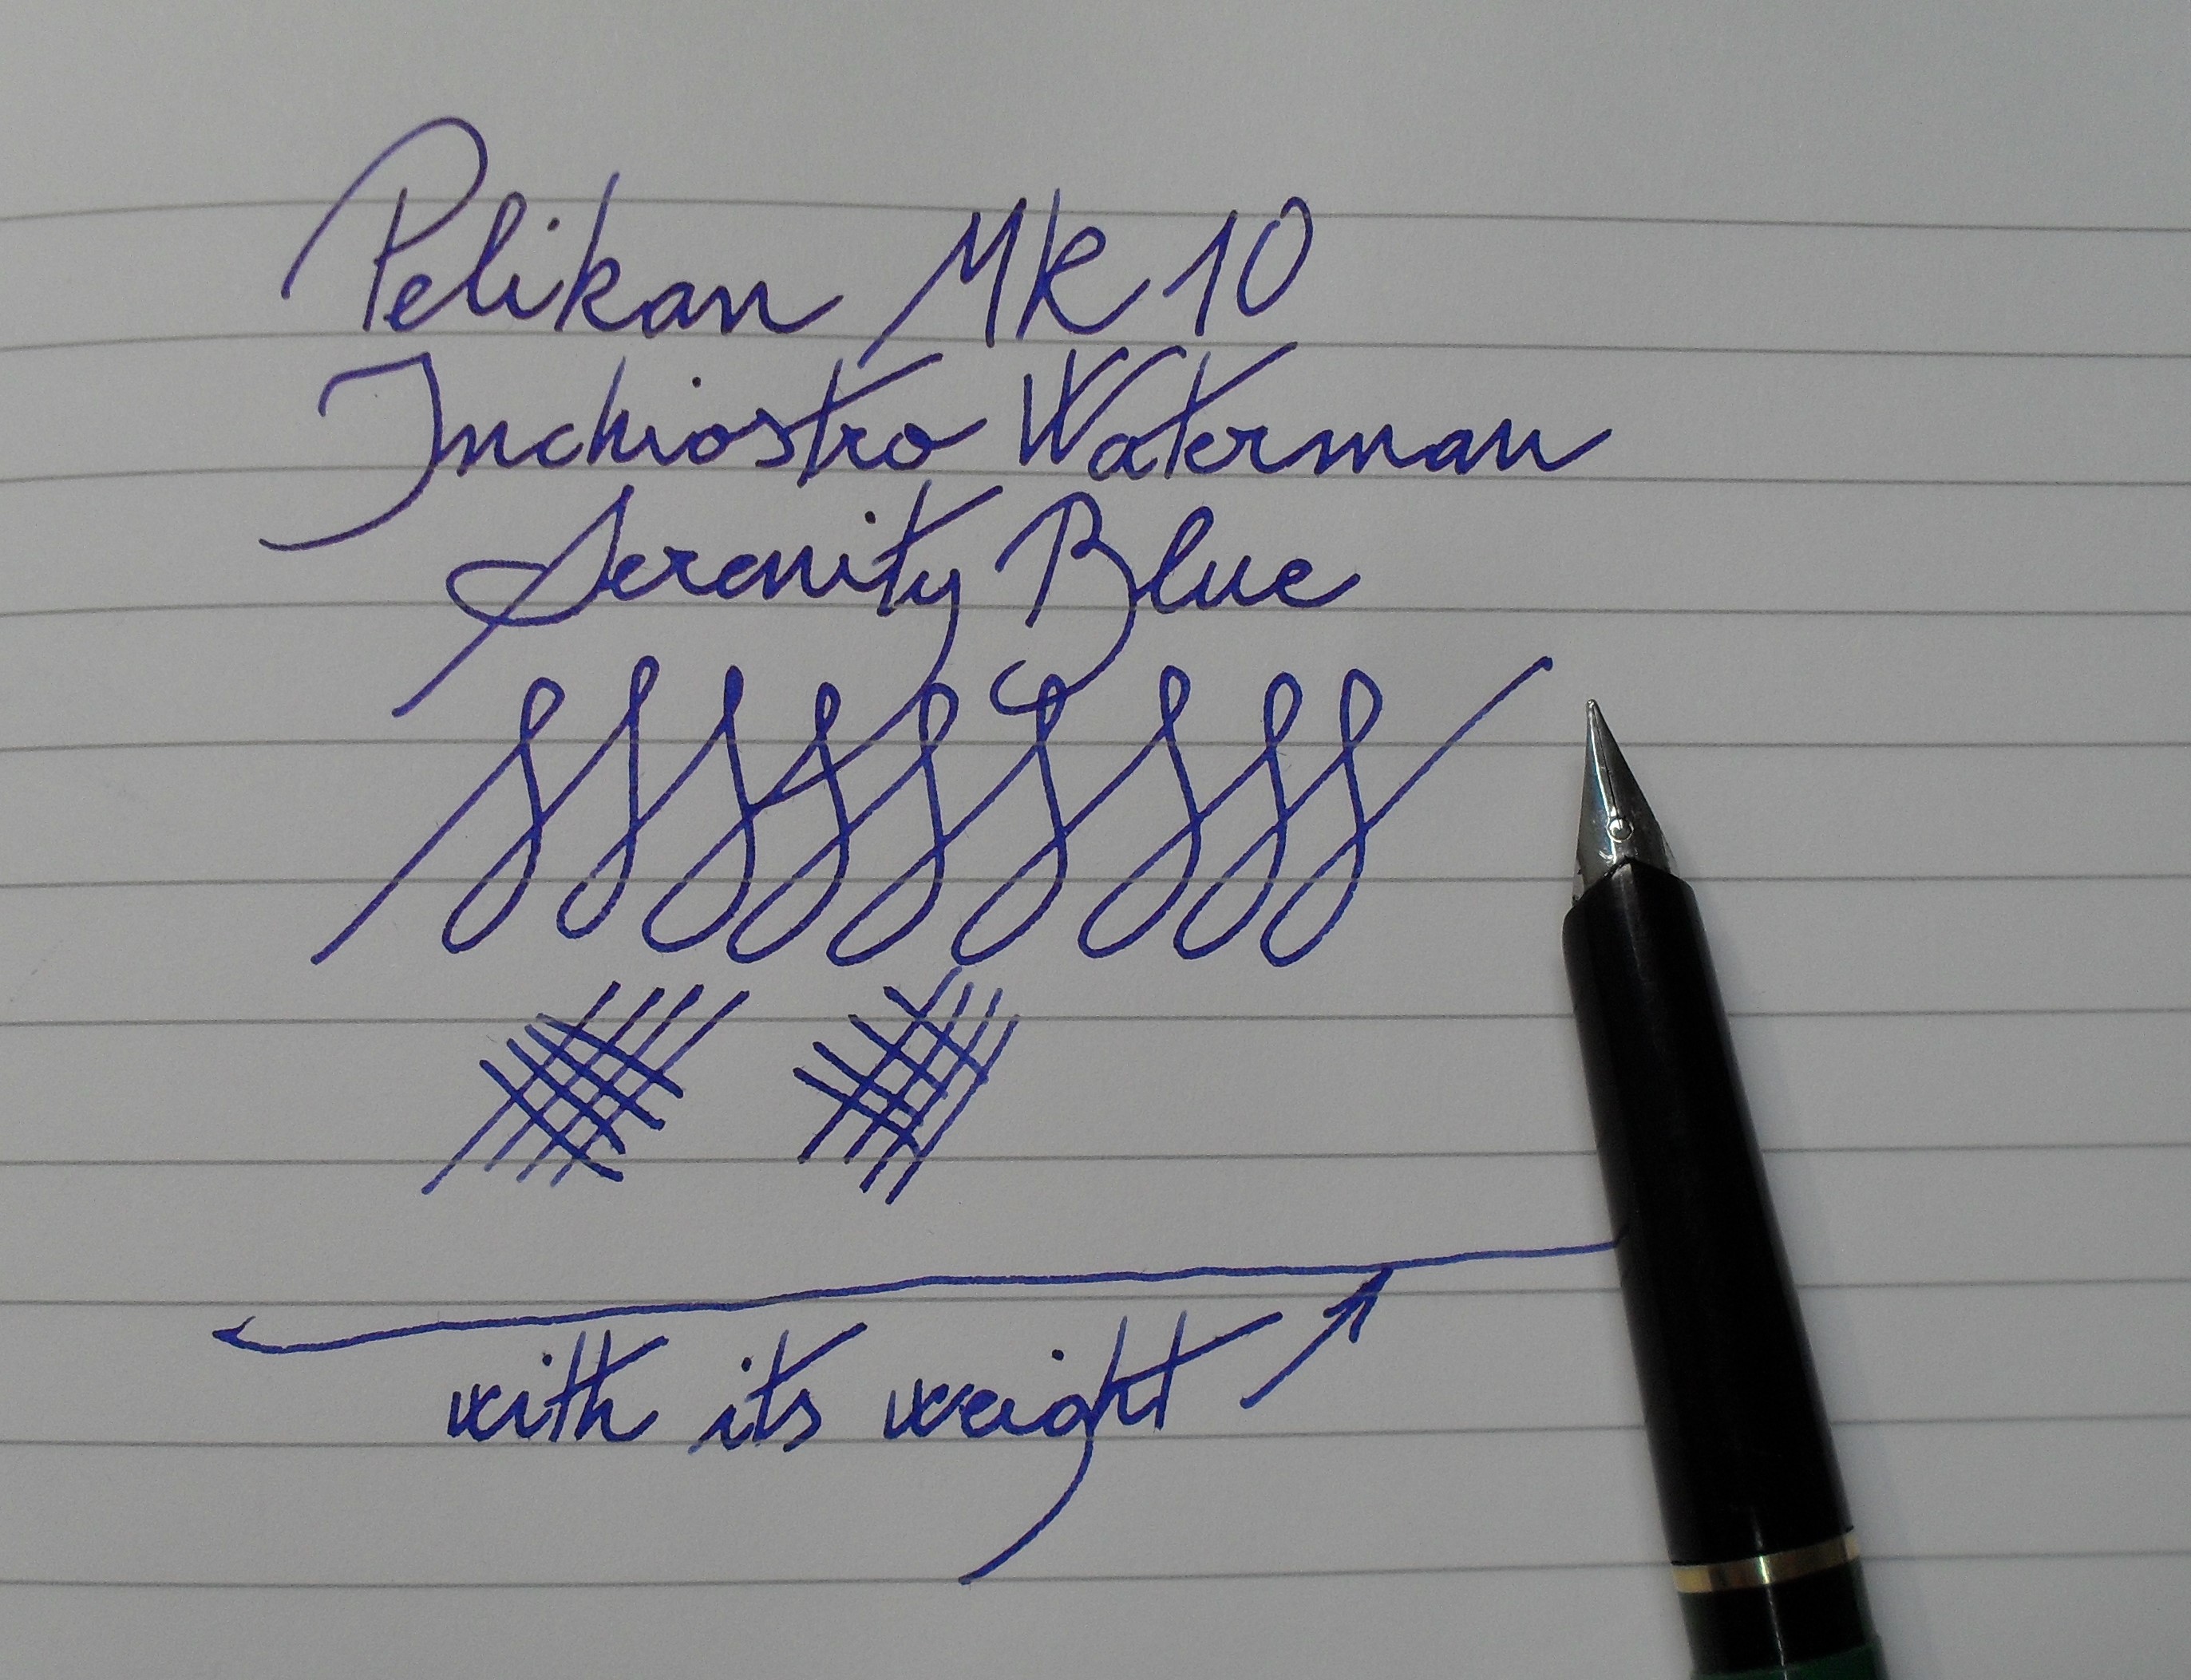 Pelikan MK 10
Inchiostro Waterman
Serenity Blue
with its weight